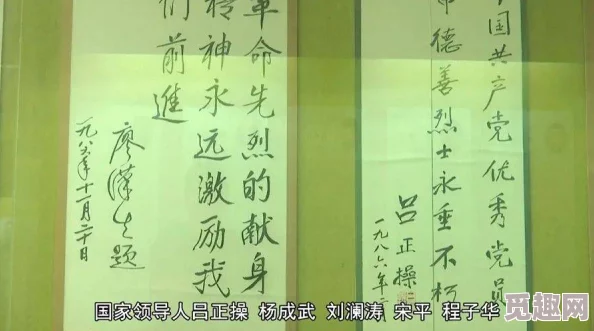 中国共产党优秀党员
德善烈士永垂不朽
吕正操
一九八六年
革命先烈的献身
精神永远激励我
们前進
廖漢生题
一九八六年十一月二十日
国家领导人吕正操 杨成武 刘澜涛 宋平 程子华
觅趣网